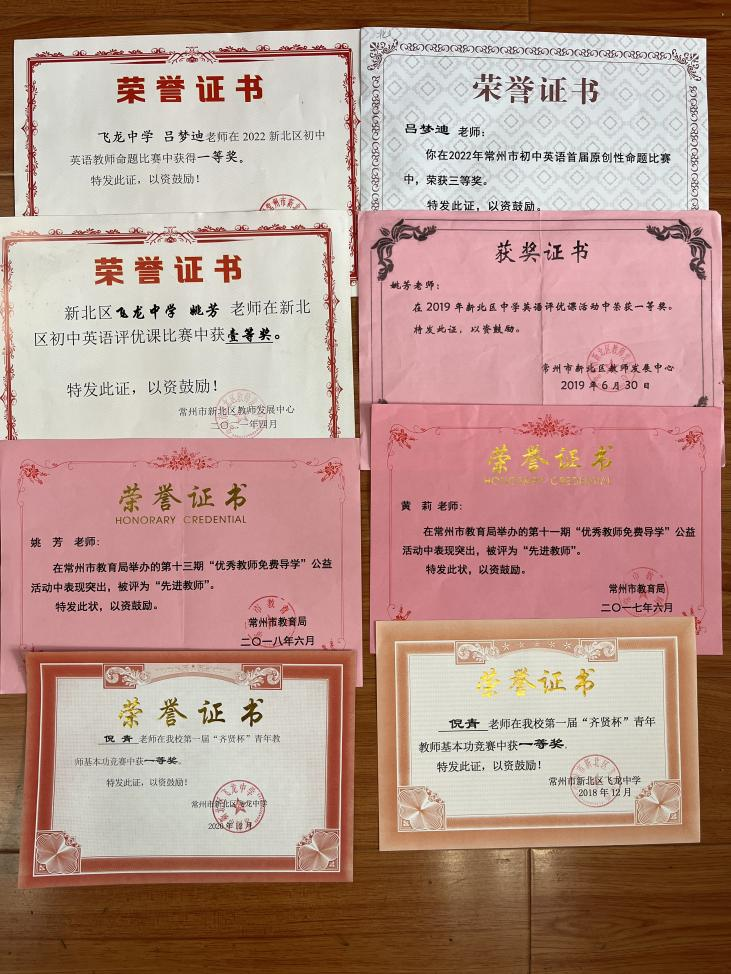 荣誉证书
飞龙中学 吕梦迪老师在 2022 新北区初中
英语教师命题比赛中获得一等奖。
特发此证，以资鼓励！
荣誉证书
吕梦迪 老师：
你在2022年常州市初中英语首届原创性命题比赛
中，荣获三等奖。
特发此证，以资鼓励。
荣誉证书
新北区飞龙中学 姚芳 老师在新北
区初中英语评优课比赛中获壹等奖。
特发此证，以资鼓励！
常州市新北区教师发展中心
二〇二一年四月
获奖证书
姚芳老师：
在 2019 年新北区中学英语评优课活动中荣获一等奖。
特发此证，以资鼓励。
常州市新北区教师发展中心
2019 年 6 月 30 日
荣誉证书
HONORARY CREDENTIAL
姚 芳 老师：
在常州市教育局举办的第十三期“优秀教师免费导学”公益
活动中表现突出，被评为“先进教师”。
特发此状，以资鼓励。
常州市教育局
二〇一八年六月
荣誉证书
HONORARY CREDENTIAL
黄 莉 老师：
在常州市教育局举办的第十一期“优秀教师免费导学”公益
活动中表现突出，被评为“先进教师”。
特发此状，以资鼓励。
常州市教育局
二〇一七年六月
荣誉证书
倪青 老师在我校第一届“齐贤杯”青年教
师基本功竞赛中获一等奖。
特发此证，以资鼓励！
常州市新北区飞龙中学
荣誉证书
倪青 老师在我校第一届“齐贤杯”青年
教师基本功竞赛中获一等奖.
特发此证，以资鼓励！
常州市新北区飞龙中学
2018 年 12 月